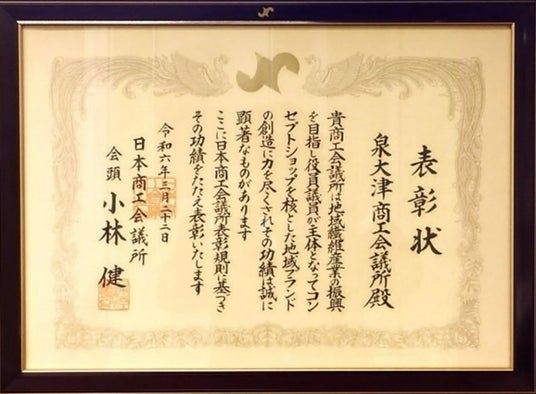 表彰状
泉大津商工会議所殿
貴商工会議所は地域繊維産業の振興
を目指し役員議員が主体となってコン
セプトショップを核とした地域ブランド
の創造に力を尽くされその功績は誠に
顕著なものがあります
ここに日本商工会議所表彰規則に基づき
その功績をたたえ表彰いたします
令和六年三月二十二日
日本商工会議所
会頭 小林 健